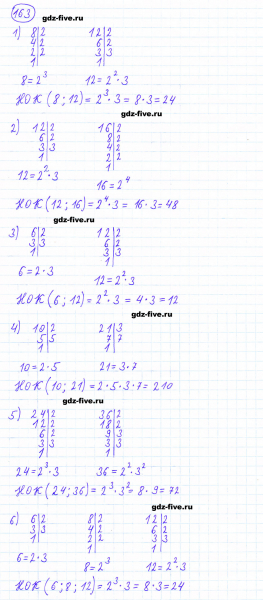 163
gdz-five.ru
1) 8|2 12|2
4|2 6|2
2|2 3|3
1| 1|
8=2³ 12=2²·3
НОК (8; 12) = 2³·3 = 8·3 = 24
gdz-five.ru
2) 12|2 16|2
6|2 8|2
3|3 4|2
1| 2|2
1|
12=2²·3
16=2⁴
НОК (12; 16) = 2⁴·3 = 16·3 = 48
gdz-five.ru
3) 6|2 12|2
3|3 6|2
1| 3|3
1|
6=2·3
12=2²·3
НОК (6; 12) = 2²·3 = 4·3 = 12
gdz-five.ru
4) 10|2 21|3
5|5 7|7
1| 1|
10=2·5 21=3·7
НОК (10; 21) = 2·5·3·7 = 210
gdz-five.ru
5) 24|2 36|2
12|2 18|2
6|2 9|3
3|3 3|3
1| 1|
24=2³·3 36=2²·3²
НОК (24; 36) = 2³·3² = 8·9 = 72
gdz-five.ru
6) 6|2 8|2 12|2
3|3 4|2 6|2
1| 2|2 3|3
1| 1|
6=2·3
8=2³ 12=2²·3
НОК (6; 8; 12) = 2³·3 = 8·3 = 24